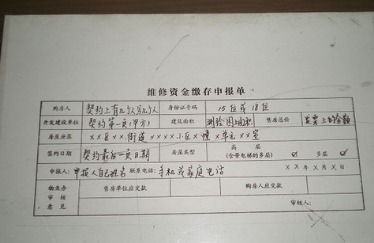 维修资金缴存申报单
购房人 契约上有几个人写几个人 身份证号码 15位或18位
开发建设单位 契约第一页(甲方) 建筑面积 测绘图面积 售房总价 发票上的金额
房屋座落 ××区××街道××××小区×幢×单元××室
签约日期 契约最后一页日期 房屋类型 高层(含带电梯的多层) 多层
申报人:申报人自己姓名 联系电话:手机或家庭电话 ××年×月×日
售房单位应交款 购房人应交款
审核意见 审核人: